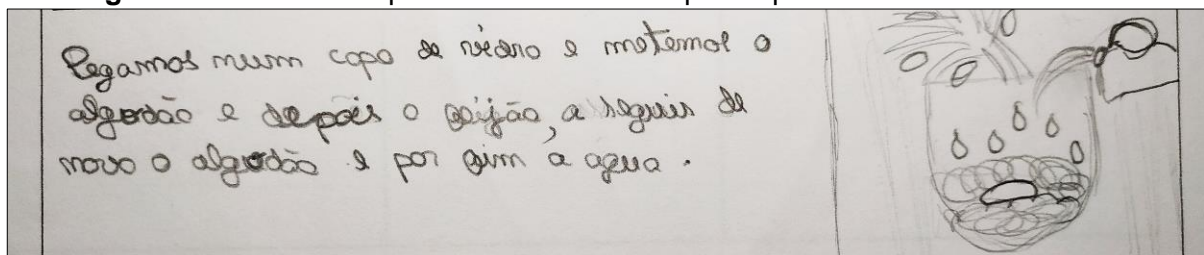 Pegamos num copo de vidro e metemos o
algodão e depois o feijão, a seguir de
novo o algodão e por fim a agua.